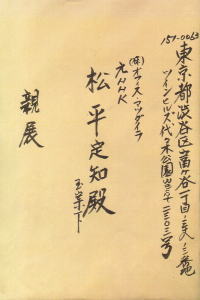 151-0063
東京都渋谷区富ヶ谷一丁目
ツインヒルズ代々木公園
(株)オフィス・マツダイラ
元NHK
松平定知殿
玉案下
親展